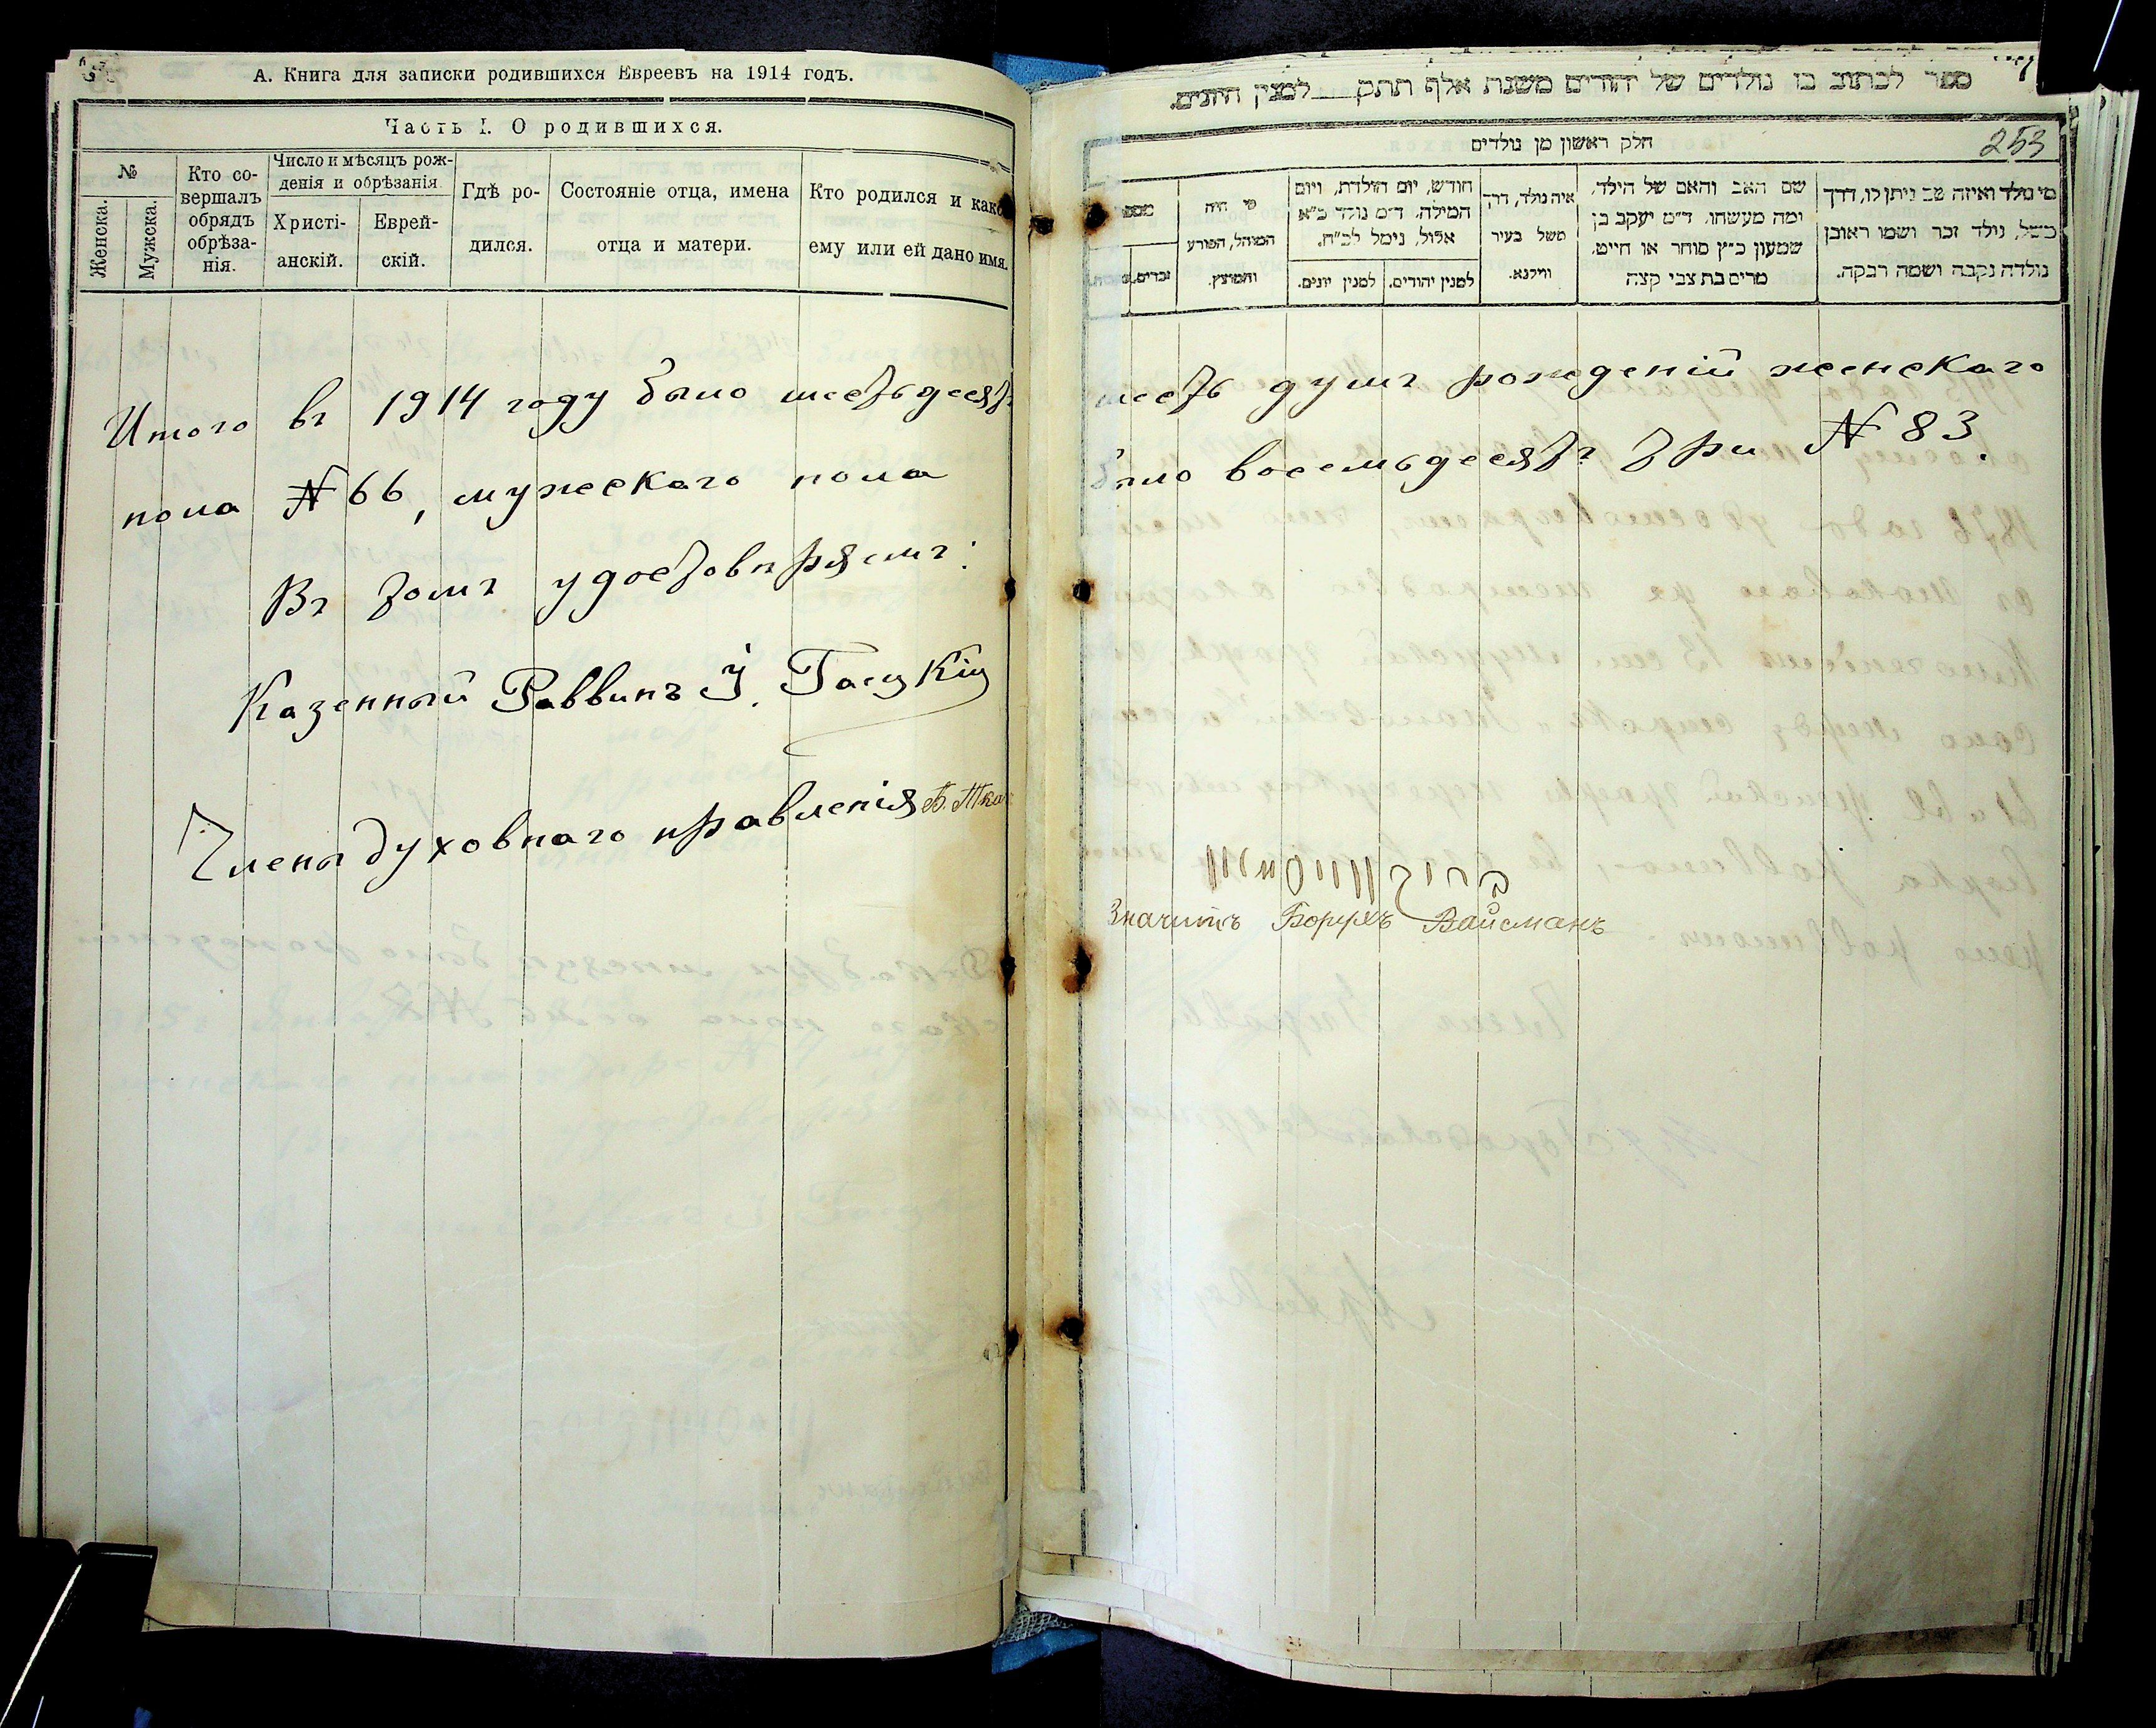 А. Книга для записки родившихся Евреевъ на 1914 годъ.
Часть I. О родившихся.
№
Женска.
Мужска.
Кто со-
вершалъ
обрядъ
обрѣза-
нія.
Число и мѣсяцъ рож-
денія и обрѣзанія
Христі-
анскій.
Еврей-
скій.
Гдѣ ро-
дился.
Состояніе отца, имена
отца и матери.
Кто родился и како
ему или ей дано имя.
Итого въ 1914 году было шестьдесятъ
пола № 66, мужескаго пола
Въ томъ удостовѣряемъ:
Казенный Раввинъ І.
Члены духовнаго правленія
ספר לכתוב בו נולדים של יהודים משנת אלף תתק למנין היונים.
253
חלק ראשון מן נולדים
מי נולד ואיזה שב ניתן לו, דרך
משל, נולד זכר ושמו ראובן
נולדה נקבה ושמה רבקה.
שם האב והאם של הילד,
ומה מעשהו. ד״מ יעקב בן
שמעון כ״ץ סוחר או חייט,
מרים בת צבי קצה
איה נולד, דרך
משל בעיר
ווילנא.
חודש, יום הולדת, ויום
המילה. ד״מ נולד כ״א
אלול, נימל לכ״ח.
למנין יהודים.
למנין יונים.
מי היה
המוהל, הפורע
והמוצץ.
זכרים.
шесть душъ рожденій женскаго
было восемьдесятъ три № 83.
ברוך ווייסמאן
Значитъ Борухъ Вайсманъ